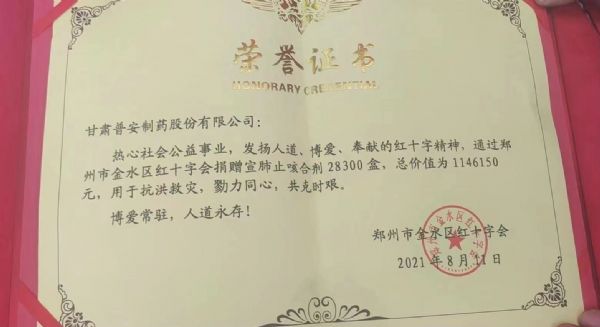 荣誉证书
HONORARY CREDENTIAL
甘肃普安制药股份有限公司：
热心社会公益事业，发扬人道、博爱、奉献的红十字精神，通过郑
州市金水区红十字会捐赠宣肺止咳合剂 28300 盒，总价值为 1146150
元，用于抗洪救灾，勠力同心，共克时艰。
博爱常驻，人道永存！
郑州市金水区红十字会
2021 年 8 月 11 日